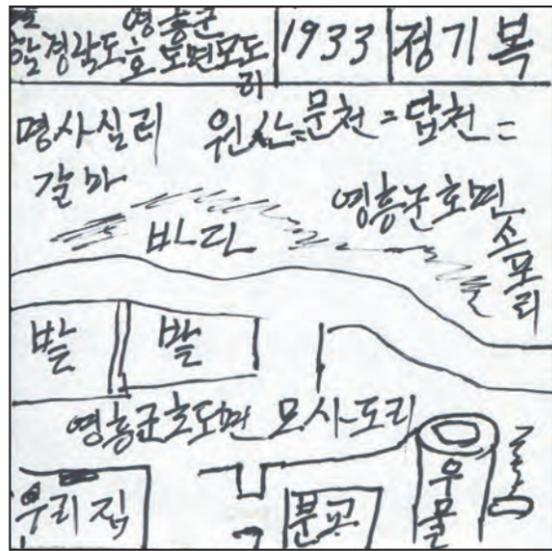 영흥군
호도면모도
리
1933
정기복
명사십리 원산=문천=덥천=
갈마
영흥군호면
소포리
바다
밭 밭
영흥군호도면 모사도리
우리집
분교
우물